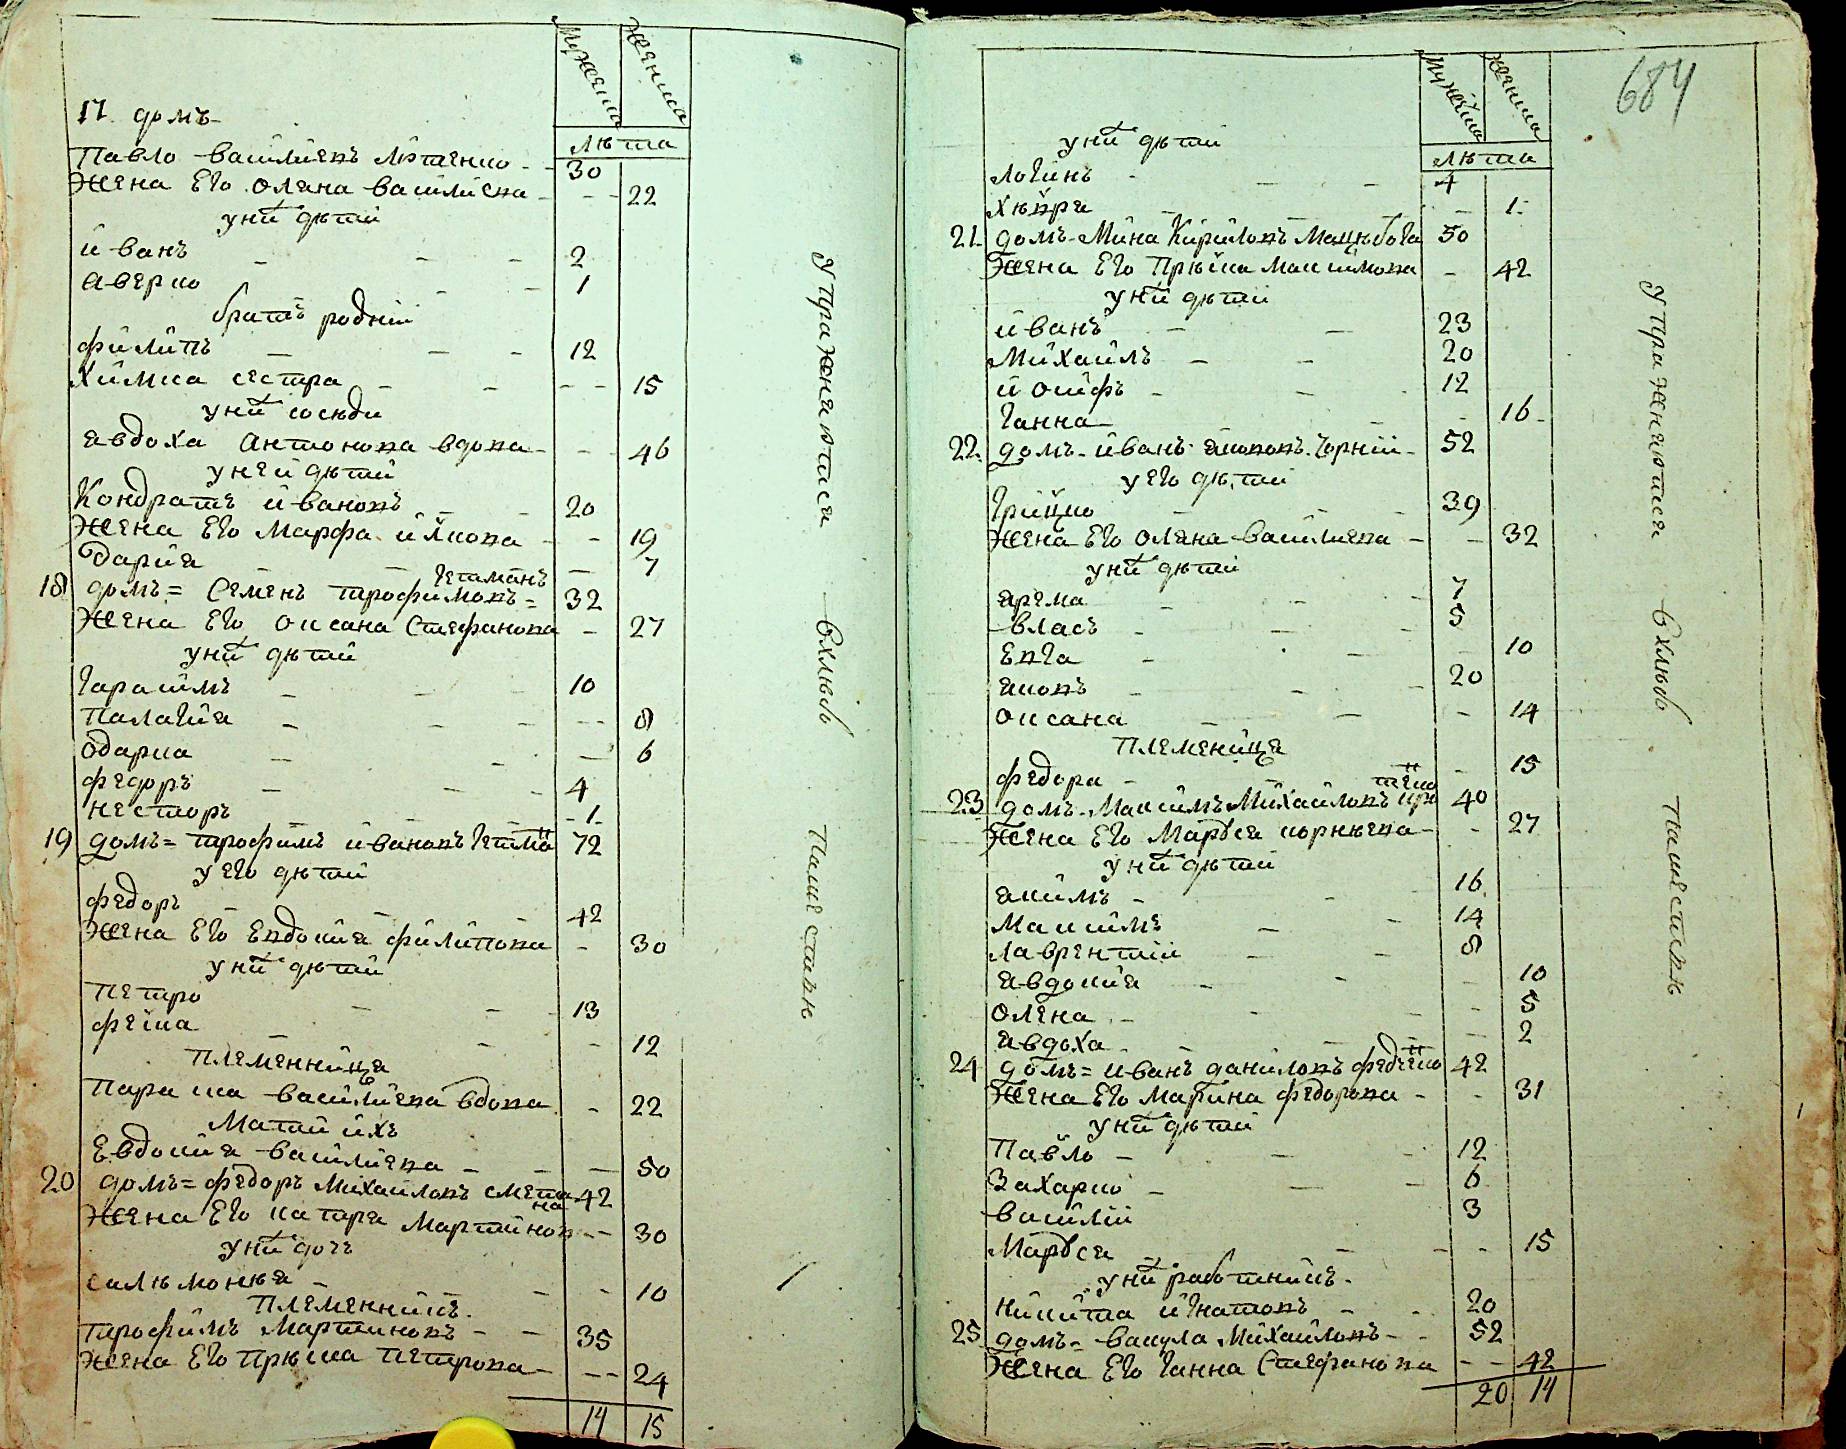 мужеска женска
17 домъ
лѣта
Павло василиевъ лѣтенко 30
жена Его олена василиева 22
уни дѣти
иванъ 2
аверко 1
братъ родній
филипъ 12
химка сестра 15
уни сосѣди
авдоха антонова вдова 46
уней дѣти
Кондратъ ивановъ 20
жена Его Марфа 19
дария 7
гетманъ
18 домъ = Семенъ трофимовъ = 32
жена Его оксана Стефанова 27
уни дѣти
гарасимъ 10
палагия 8
одарка 6
федоръ 4
несторъ 1
19 домъ = трофимъ ивановъ гетма 72
у Его дѣти
федоръ 42
жена Его Евдокия филипова 30
уни дѣти
петро 13
феска 12
племенница
параска василиева вдова 22
Мати ихъ
Евдокия василиева 50
20 домъ = федоръ Михаиловъ смета 42
на
жена Его катря Мартинов 30
уни дочъ
салѣмонѣя 10
племенникъ
трофимъ Мартиновъ 35
жена Его прѣска петрова 24
14 15
упражняются вхлѣбопашествѣ
684
мужеска женска
уни дѣти
лѣта
логинъ 4
хѣвря 1
21 домъ Мина Кириловъ Мацѣбога 50
жена Его Прѣска Максимова 42
уни дѣти
иванъ 23
Михаилъ 20
иосифъ 12
ганна 16
22 домъ иванъ якововъ чорній 52
у Его дѣти
грицко 39
жена Его олена василиева 32
уни дѣти
ярема 7
власъ 5
Евга 10
яковъ 20
оксана 14
племеница
федора 15
23 домъ Максимъ Михаиловъ 40
жена Его Маруся корнѣева 27
уни дѣти
якимъ 16
Максимъ 14
лаврентій 8
авдокия 10
олена 5
авдоха 2
24 домъ = иванъ даниловъ федченко 42
жена Его Марина федорова 31
уни дѣти
Павло 12
Захарко 6
василій 3
Маруся 15
уни работникъ
никита игнатовъ 20
25 домъ = вакула Михаиловъ 52
жена Его ганна Стефанова 42
20 14
упражняются вхлѣбопашествѣ